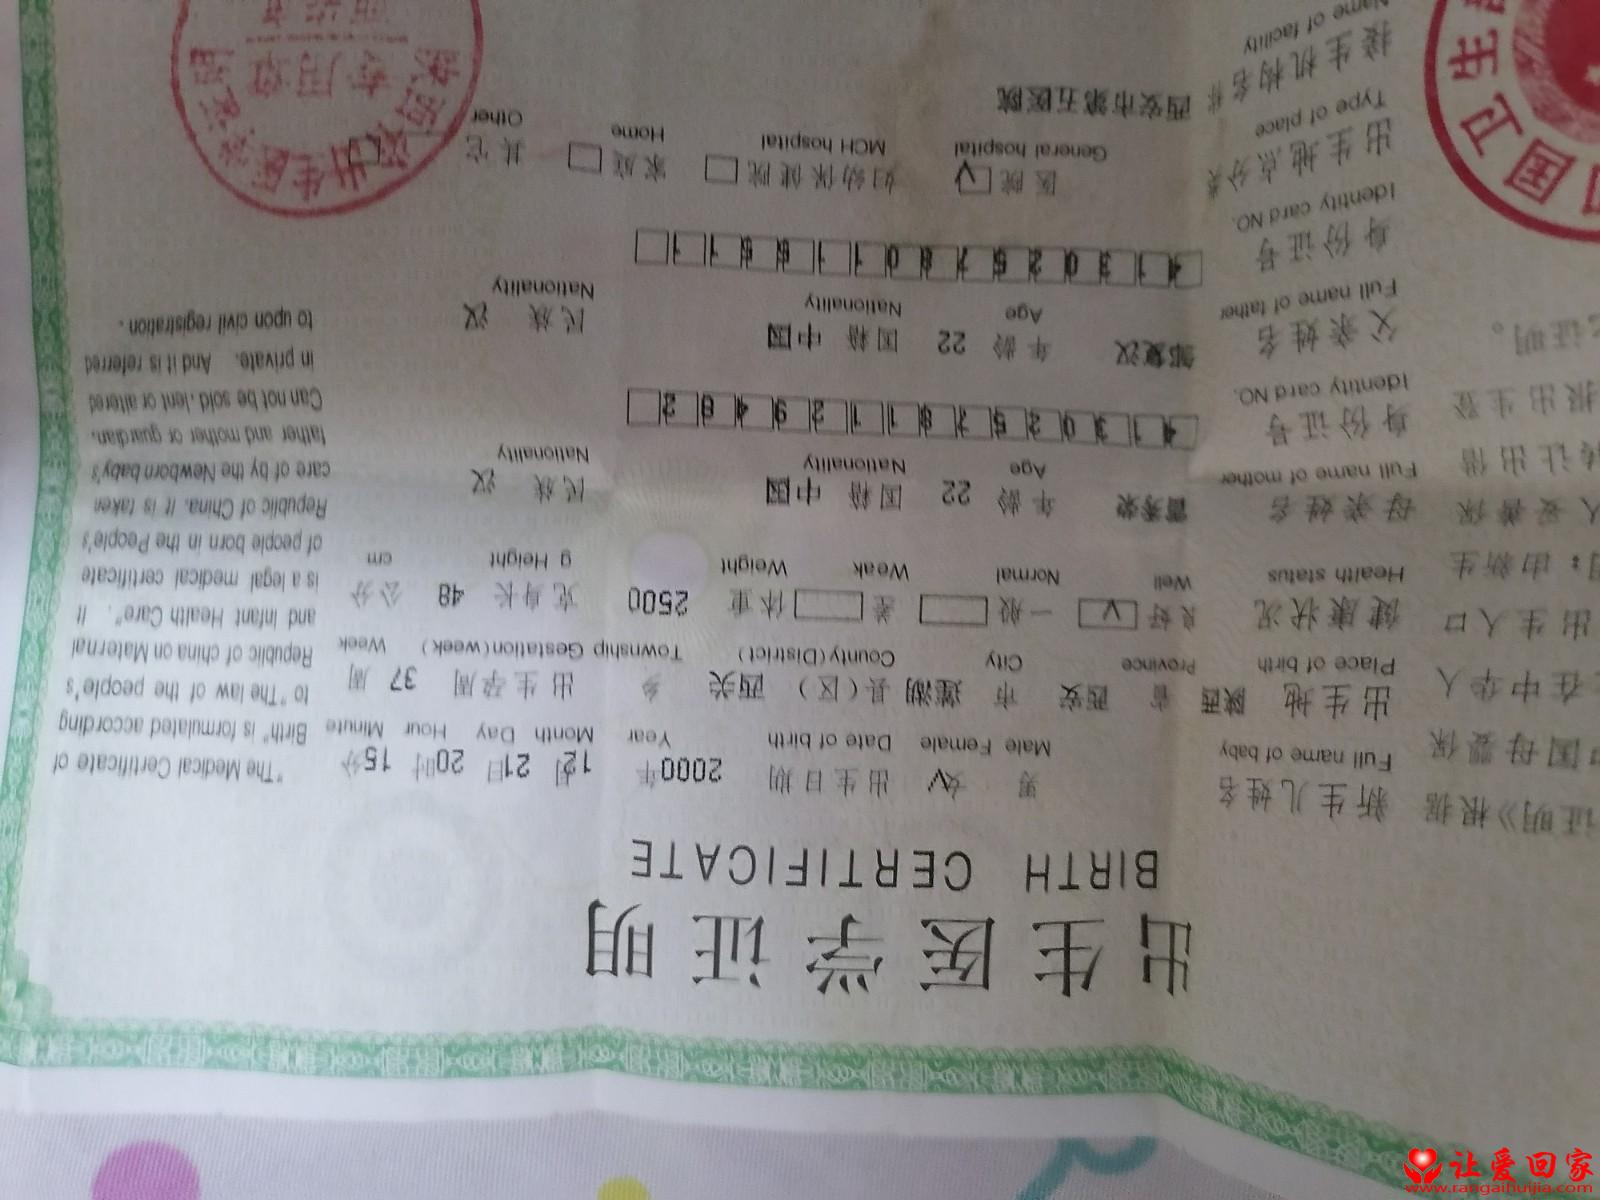 出生医学证明
BIRTH CERTIFICATE
新生儿姓名 男 女√ 出生日期 2000年 12月 21日 20时 15分
Full name of baby Male Female Date of birth Year Month Day Hour Minute
出生地 陕西 省 西安 市 莲湖 县(区) 西关 乡 出生孕周 37 周
Place of birth Province City County(District) Township Gestation(week) Week
健康状况 良好 √ 一般 差 体重 2500 克 身长 48 公分
Health status Well Normal Weak Weight g Height cm
母亲姓名 雷秀荣 年龄 22 国籍 中国 民族 汉
Full name of mother Age Nationality Nationality
身份证号 413025781129482
Identity card NO.
父亲姓名 邹复汉 年龄 22 国籍 中国 民族 汉
Full name of father Age Nationality Nationality
身份证号 413025780116611
Identity card NO.
出生地点分类 医院 √ 妇幼保健院 家庭 其它
Type of place General hospital MCH hospital Home Other
接生机构名称 西安市第五医院
Name of facility
"The Medical Certificate of
Birth" is formulated according
to "The law of the people's
Republic of china on Maternal
and Infant Health Care". It
is a legal medical certificate
of people born in the People's
Republic of China. It is taken
care of by the Newborn baby's
father and mother or guardian.
Can not be sold, lent or altered
in private. And it is referred
to upon civil registration.
证明》根据
国母婴保
在中华人
出生人口
明：由新生
人妥善保
转让出借
报出生登
证明。
出生医学证明
专用章
国卫生
让爱回家
www.rangaihuijia.com